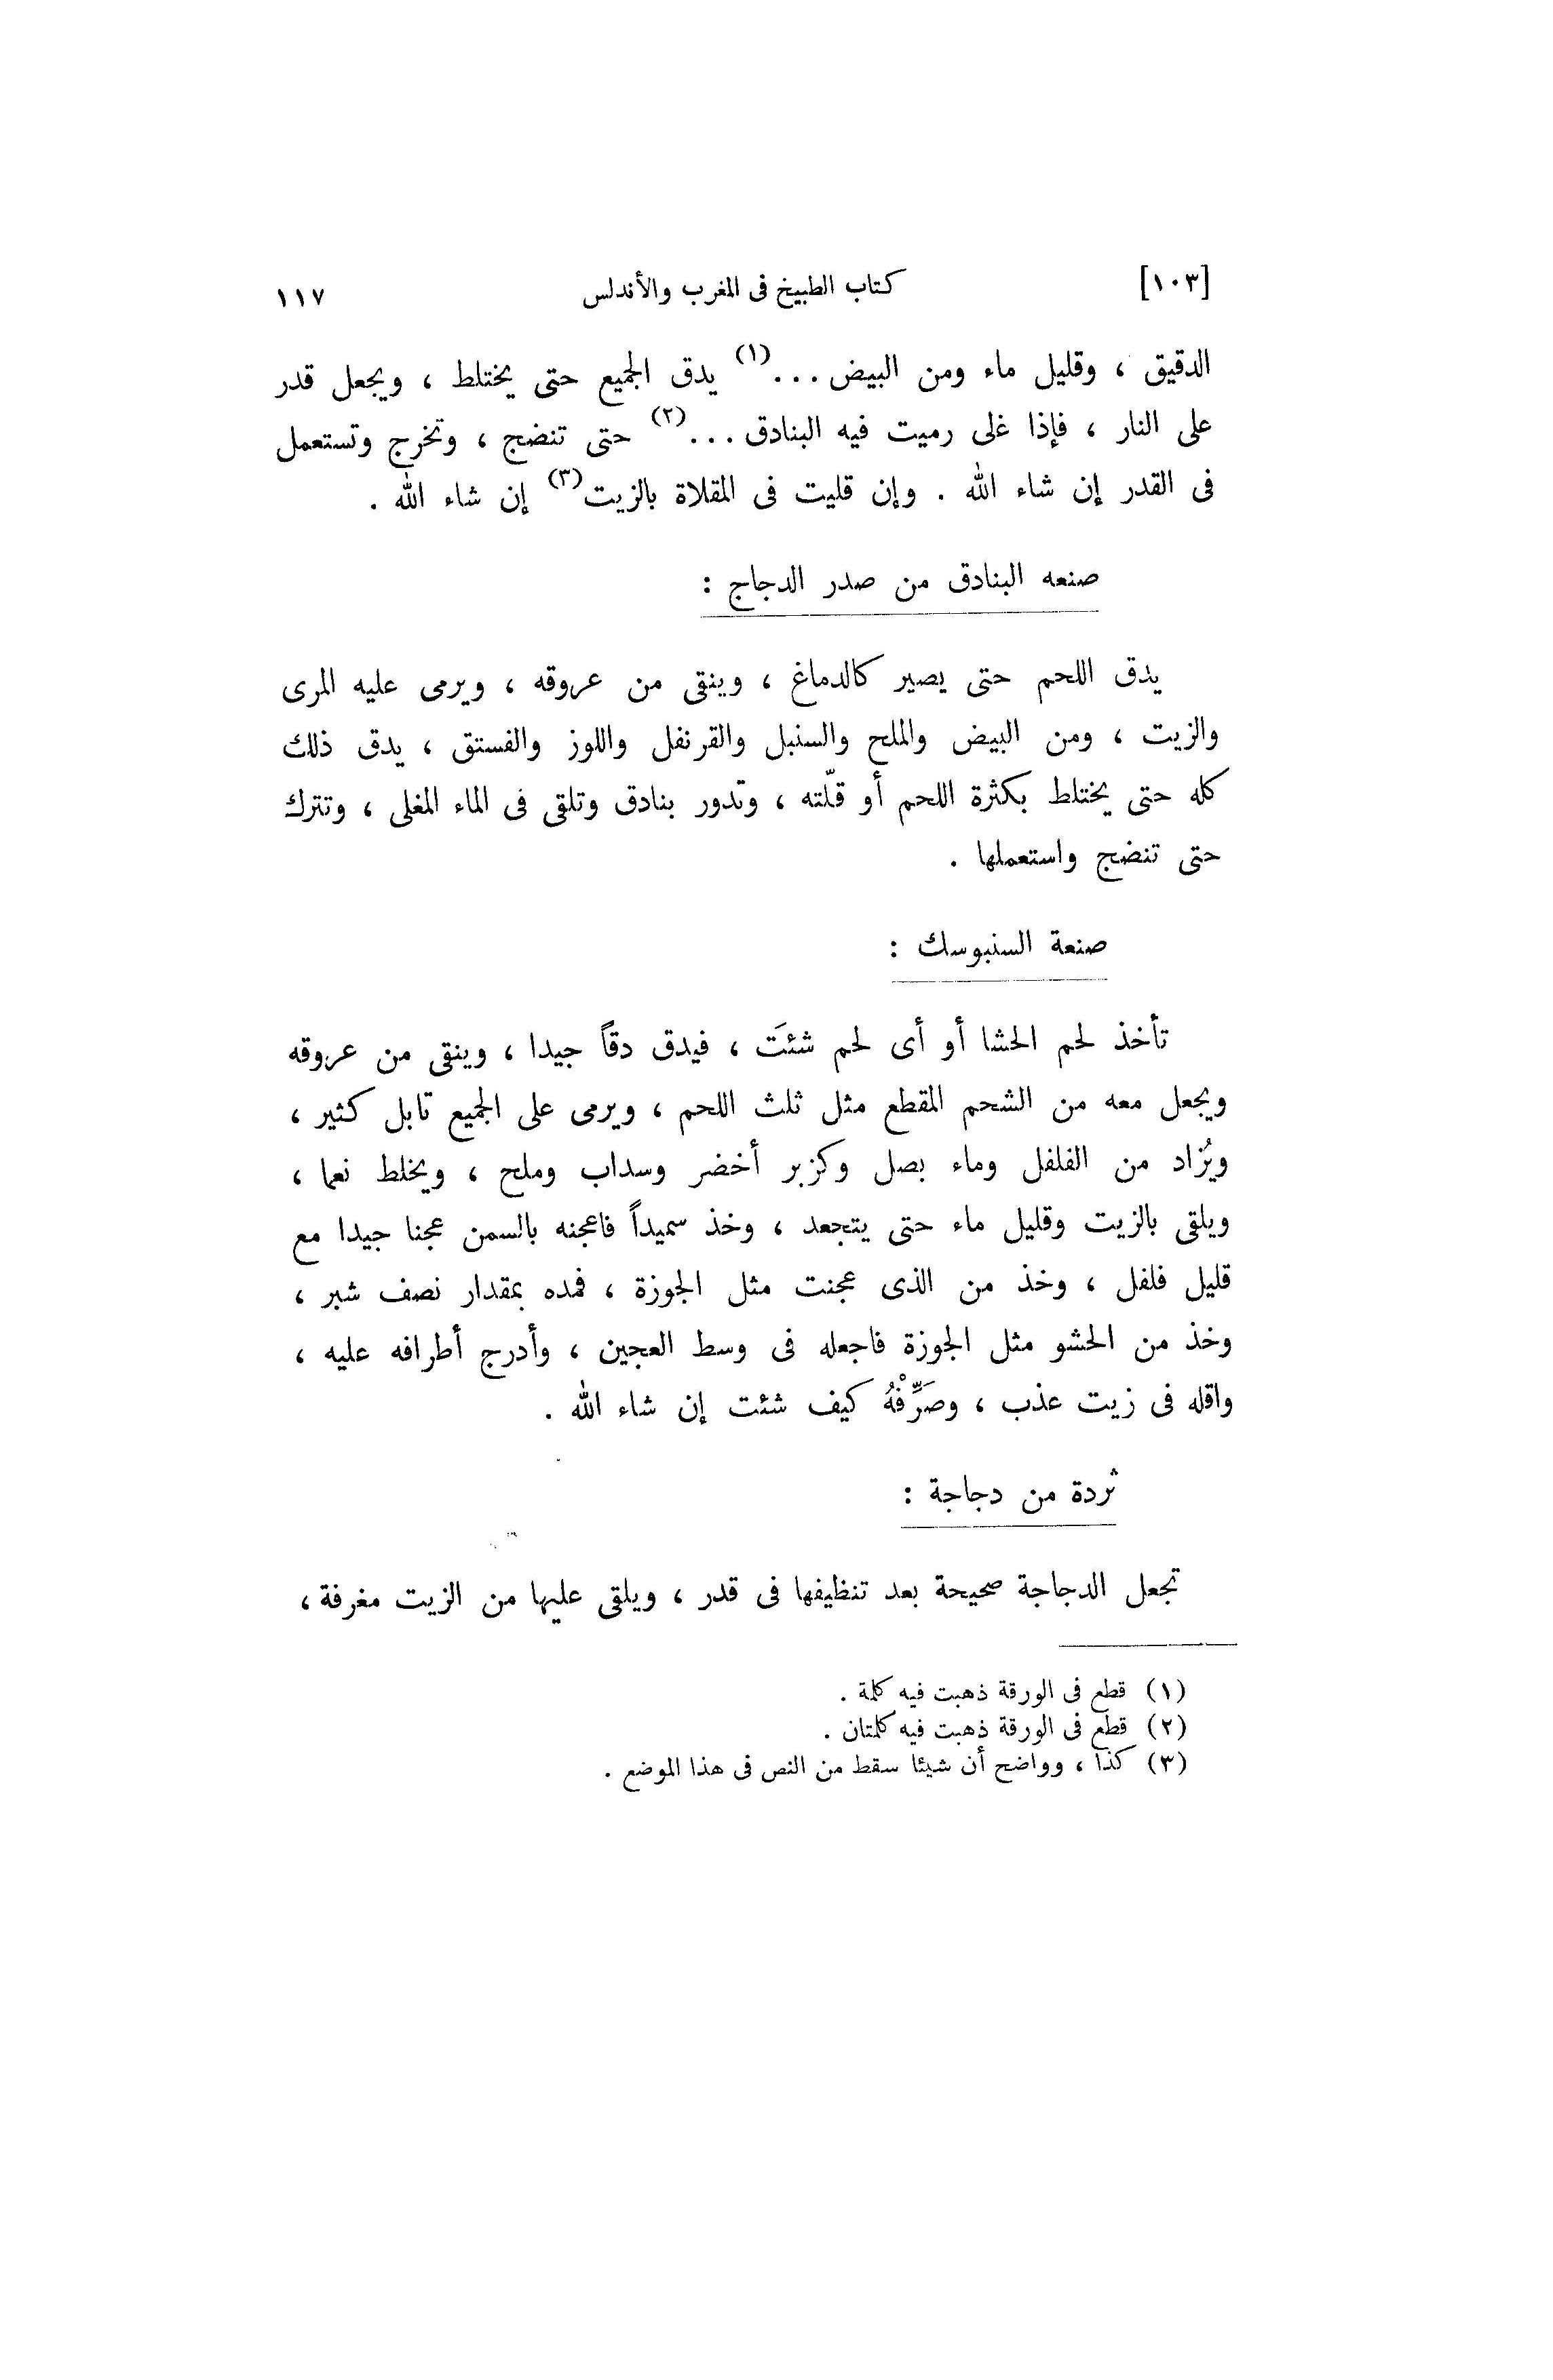 [١٠٣] كتاب الطبيخ فى المغرب والأندلس ١١٧
الدقيق ، وقليل ماء ومن البيض ...(١) يدق الجميع حتى يختلط ، ويجعل قدر
على النار ، فإذا غلى رميت فيه البنادق ...(٢) حتى تنضج ، وتخرج وتستعمل
فى القدر إن شاء الله . وإن قليت فى المقلاة بالزيت(٣) إن شاء الله .
صنعه البنادق من صدر الدجاج :
يدق اللحم حتى يصير كالدماغ ، وينقى من عروقه ، ويرمى عليه المرى
والزيت ، ومن البيض والملح والسنبل والقرنفل واللوز والفستق ، يدق ذلك
كله حتى يختلط بكثرة اللحم أو قلّته ، وتدور بنادق وتلقى فى الماء المغلى ، وتترك
حتى تنضج واستعملها .
صنعة السنبوسك :
تأخذ لحم الحشا أو أى لحم شئتَ ، فيدق دقاً جيدا ، وينقى من عروقه
ويجعل معه من الشحم المقطع مثل ثلث اللحم ، ويرمى على الجميع تابل كثير ،
ويُزاد من الفلفل وماء بصل وكزبر أخضر وسداب وملح ، ويخلط نعما ،
ويلقى بالزيت وقليل ماء حتى يتجعد ، وخذ سميداً فاعجنه بالسمن عجنا جيدا مع
قليل فلفل ، وخذ من الذى عجنت مثل الجوزة ، فمده بمقدار نصف شبر ،
وخذ من الحشو مثل الجوزة فاجعله فى وسط العجين ، وأدرج أطرافه عليه ،
واقله فى زيت عذب ، وصَرِّفْهُ كيف شئت إن شاء الله .
ثردة من دجاجة :
تجعل الدجاجة صحيحة بعد تنظيفها فى قدر ، ويلقى عليها من الزيت مغرفة ،
(١) قطع فى الورقة ذهبت فيه كلمة .
(٢) قطع فى الورقة ذهبت فيه كلمتان .
(٣) كذا ، وواضح أن شيئا سقط من النص فى هذا الموضع .